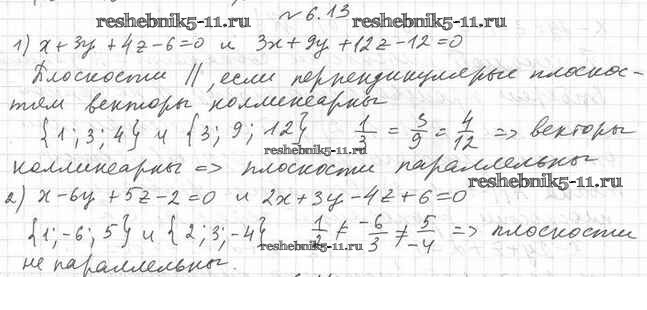 № 6.13
reshebnik5-11.ru reshebnik5-11.ru
1) x+3y+4z-6=0 и 3x+9y+12z-12=0
Плоскости ||, если перпендикулярые плоскос-
тям векторы коллинеарны
{1; 3; 4} и {3; 9; 12} 1/3 = 3/9 = 4/12 => векторы
коллинеарны => плоскости параллельны
reshebnik5-11.ru
2) x-6y+5z-2=0 и 2x+3y-4z+6=0
{1;-6; 5} и {2; 3; -4} 1/2 ≠ -6/3 ≠ 5/-4 => плоскости
reshebnik5-11.ru
не параллельны.